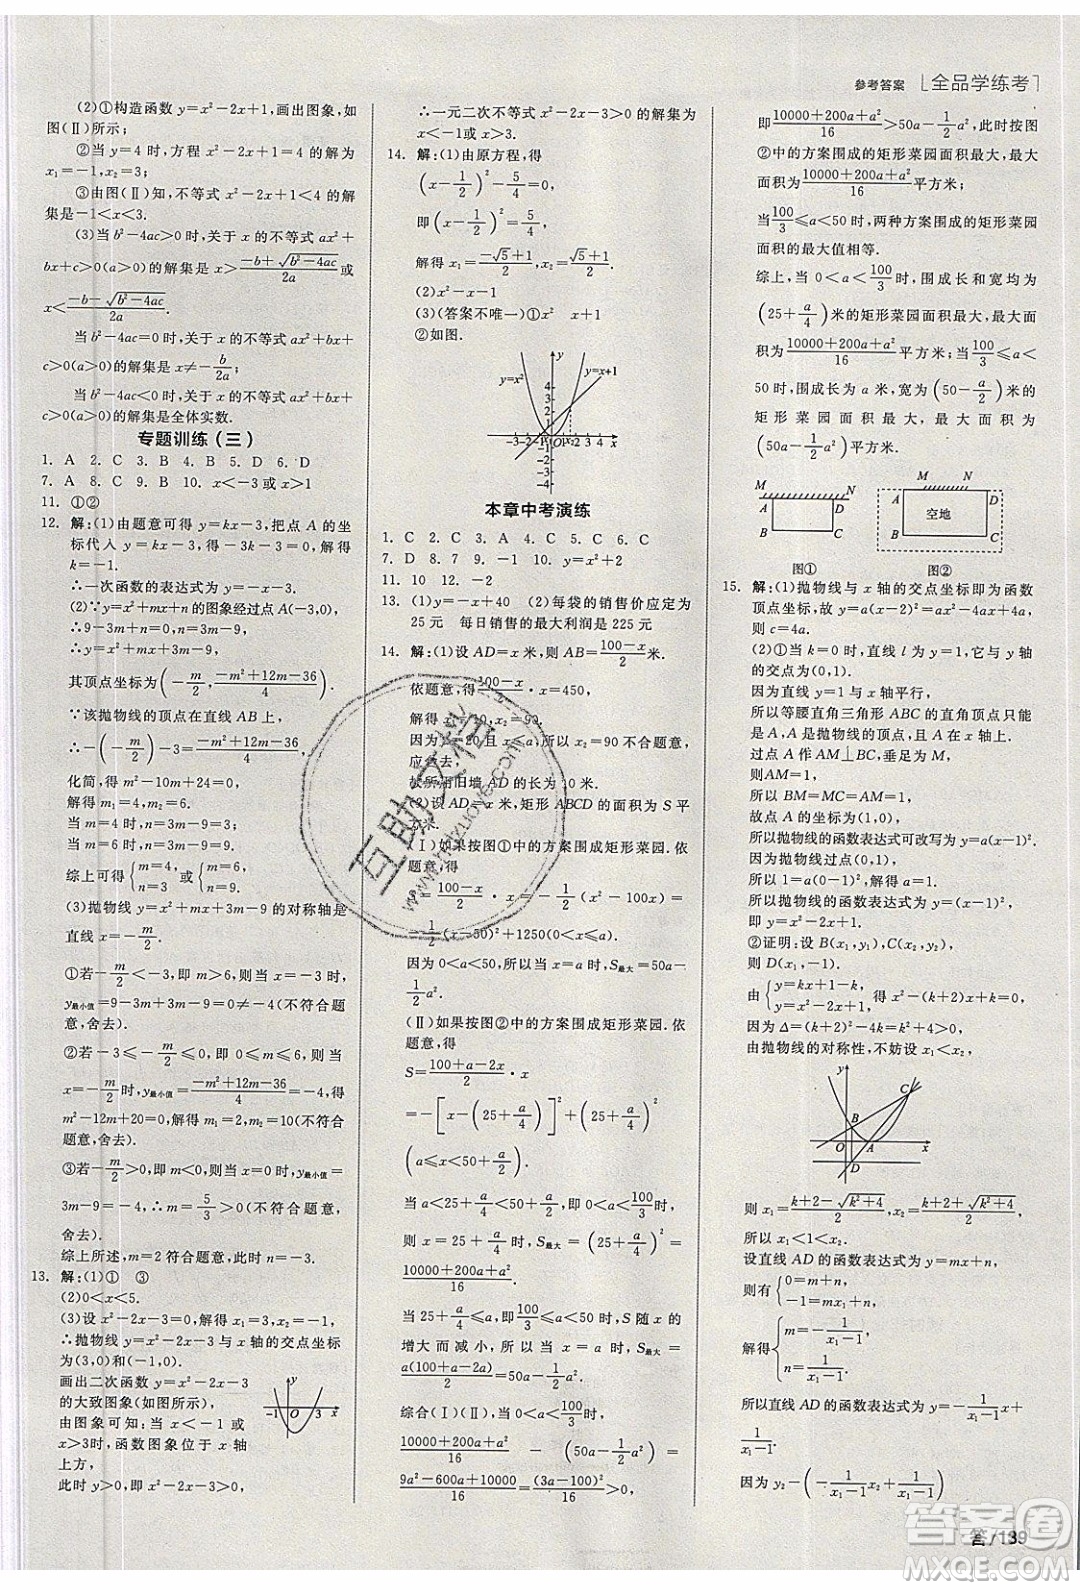 参考答案 [全品学练考]
(2)①构造函数 y=x²-2x+1,画出图象,如
图(Ⅱ)所示;
②当 y=4 时,方程 x²-2x+1=4 的解为
x₁=-1,x₂=3.
③由图(Ⅱ)知,不等式 x²-2x+1<4 的解
集是-1<x<3.
(3)当 b²-4ac>0时,关于 x 的不等式 ax²+
bx+c>0(a>0)的解集是 x>(-b+√(b²-4ac))/2a 或
x<(-b-√(b²-4ac))/2a.
当 b²-4ac=0 时,关于 x 的不等式 ax²+bx+
c>0(a>0)的解集是 x≠-b/2a;
当 b²-4ac<0 时,关于 x 的不等式 ax²+bx+
c>0(a>0)的解集是全体实数.
专题训练(三)
1. A 2. C 3. B 4. B 5. D 6. D
7. A 8. C 9. B 10. x<-3 或 x>1
11. ①②
12. 解:(1)由题意可得 y=kx-3,把点 A 的坐
标代入 y=kx-3,得 -3k-3=0,解得
k=-1.
∴一次函数的表达式为 y=-x-3.
(2)∵y=x²+mx+n 的图象经过点 A(-3,0),
∴9-3m+n=0,∴n=3m-9,
∴y=x²+mx+3m-9,
其顶点坐标为(-m/2, (-m²+12m-36)/4).
∵该抛物线的顶点在直线 AB 上,
∴-(-m/2)-3=(-m²+12m-36)/4,
化简,得 m²-10m+24=0,
解得 m₁=4,m₂=6.
当 m=4 时,n=3m-9=3;
当 m=6 时,n=3m-9=9.
综上可得{m=4, n=3 或{m=6, n=9.
(3)抛物线 y=x²+mx+3m-9 的对称轴是
直线 x=-m/2.
①若-m/2<-3,即 m>6,则当 x=-3 时,
y最小值=9-3m+3m-9=0≠-4(不符合题
意,舍去).
②若-3≤-m/2≤0,即 0≤m≤6,则当
x=-m/2时,y最小值=(-m²+12m-36)/4=-4,得
m²-12m+20=0,∴m₁=2,m₂=10(不符合
题意,舍去).
③若-m/2>0,即 m<0,则当 x=0 时,y最小值=
3m-9=-4,∴m=5/3>0(不符合题意,
舍去).
综上所述,m=2 符合题意,此时 n=-3.
13. 解:(1)① ③
(2)0<x<5.
(3)设 x²-2x-3=0,解得 x₁=3,x₂=-1,
∴抛物线 y=x²-2x-3 与 x 轴的交点坐标
为(3,0)和(-1,0).
画出二次函数 y=x²-2x-3
的大致图象(如图所示),
由图象可知:当 x<-1 或
x>3时,函数图象位于 x 轴
上方,
此时 y>0,即 x²-2x-3>0,
y
-1 O 3 x
∴一元二次不等式 x²-2x-3>0 的解集为
x<-1 或 x>3.
14. 解:(1)由原方程,得
(x-1/2)²-5/4=0,
即(x-1/2)²=5/4,
解得 x₁=(-√5+1)/2,x₂=(√5+1)/2.
(2)x²-x-1=0
(3)(答案不唯一)①x² x+1
②如图.
y=x² y y=x+1
4
3
2
1
-3-2-1 x₁ O x₂ 2 3 4 x
-1
-2
-3
-4
本章中考演练
1. C 2. C 3. C 4. C 5. C 6. C
7. D 8. 7 9. -1 10. y=x²+2
11. 10 12. -2
13. (1)y=-x+40 (2)每袋的销售价应定为
25 元 每日销售的最大利润是 225 元
14. 解:(1)设 AD=x 米,则 AB=(100-x)/2 米.
依题意,得(100-x)/2·x=450,
解得 x₁=10,x₂=90.
因为 a=20 且 x≤a,所以 x₂=90 不合题意,
应舍去,
故所用旧墙 AD 的长为 10 米.
(2)设 AD=x 米,矩形 ABCD 的面积为 S 平
方米.
(Ⅰ)如果按图①中的方案围成矩形菜园.依
题意,得
S=(100-x)/2·x=-1/2(x²-100x)=
-1/2(x-50)²+1250(0<x≤a).
因为 0<a<50,所以当 x=a 时,S最大=50a-
1/2a².
(Ⅱ)如果按图②中的方案围成矩形菜园.依
题意,得
S=(100+a-2x)/2·x=
-[x-(25+a/4)]²+(25+a/4)²
(a≤x<50+a/2).
当 a<25+a/4,即 0<a<100/3时,
则 x=25+a/4 时,S最大=(25+a/4)²=
(10000+200a+a²)/16;
当 25+a/4≤a,即100/3≤a<50时,S 随 x 的
增大而减小,所以当 x=a 时,S最大=
a(100+a-2a)/2=50a-1/2a².
综合(Ⅰ)(Ⅱ),当 0<a<100/3时,
(10000+200a+a²)/16-(50a-1/2a²)=
(9a²-600a+10000)/16=(3a-100)²/16>0,
即(10000+200a+a²)/16>50a-1/2a²,此时按图
②中的方案围成的矩形菜园面积最大,最大
面积为(10000+200a+a²)/16平方米;
当100/3≤a<50 时,两种方案围成的矩形菜园
面积的最大值相等.
综上,当 0<a<100/3时,围成长和宽均为
(25+a/4)米的矩形菜园面积最大,最大面
积为(10000+200a+a²)/16平方米;当100/3≤a<
50 时,围成长为 a 米,宽为(50-a/2)米的
矩形菜园面积最大,最大面积为
(50a-1/2a²)平方米.
M N
A D
B C
图①
M N
A D
空地
B C
图②
15. 解:(1)抛物线与 x 轴的交点坐标即为函数
顶点坐标,故 y=a(x-2)²=ax²-4ax+4a,
则 c=4a.
(2)①当 k=0 时,直线 l 为 y=1,它与 y 轴
的交点为(0,1).
因为直线 y=1 与 x 轴平行,
所以等腰直角三角形 ABC 的直角顶点只能
是 A,A 是抛物线的顶点,且点 A 在 x 轴上.
过点 A 作 AM⊥BC,垂足为 M,
则AM=1.
所以 BM=MC=AM=1,
故点 A 的坐标为(1,0),
所以抛物线的函数表达式可改写为 y=a(x-1)².
因为抛物线过点(0,1),
所以 1=a(0-1)²,解得 a=1.
故抛物线的函数表达式为 y=(x-1)²,
即 y=x²-2x+1.
②证明:设 B(x₁,y₁),C(x₂,y₂),
则 D(x₁,-1).
由{y=kx+1-k, y=x²-2x+1, 得 x²-(k+2)x+k=0,
因为 Δ=(k+2)²-4k=k²+4>0,
由抛物线的对称性,不妨设 x₁<x₂,
y
C
B
O A x
D
则 x₁=(k+2-√(k²+4))/2,x₂=(k+2+√(k²+4))/2,
所以 x₁<1<x₂.
设直线 AD 的函数表达式为 y=mx+n,
则有{0=m+n, -1=mx₁+n,
解得{m=-1/(x₁-1), n=1/(x₁-1).
所以直线 AD 的函数表达式为 y=-1/(x₁-1)x+
1/(x₁-1).
因为 y₂-(-1/(x₁-1)x₂+1/(x₁-1))=
答/139
互助文楷
www.hdzuoye.com
答案圈
MXQE.COM